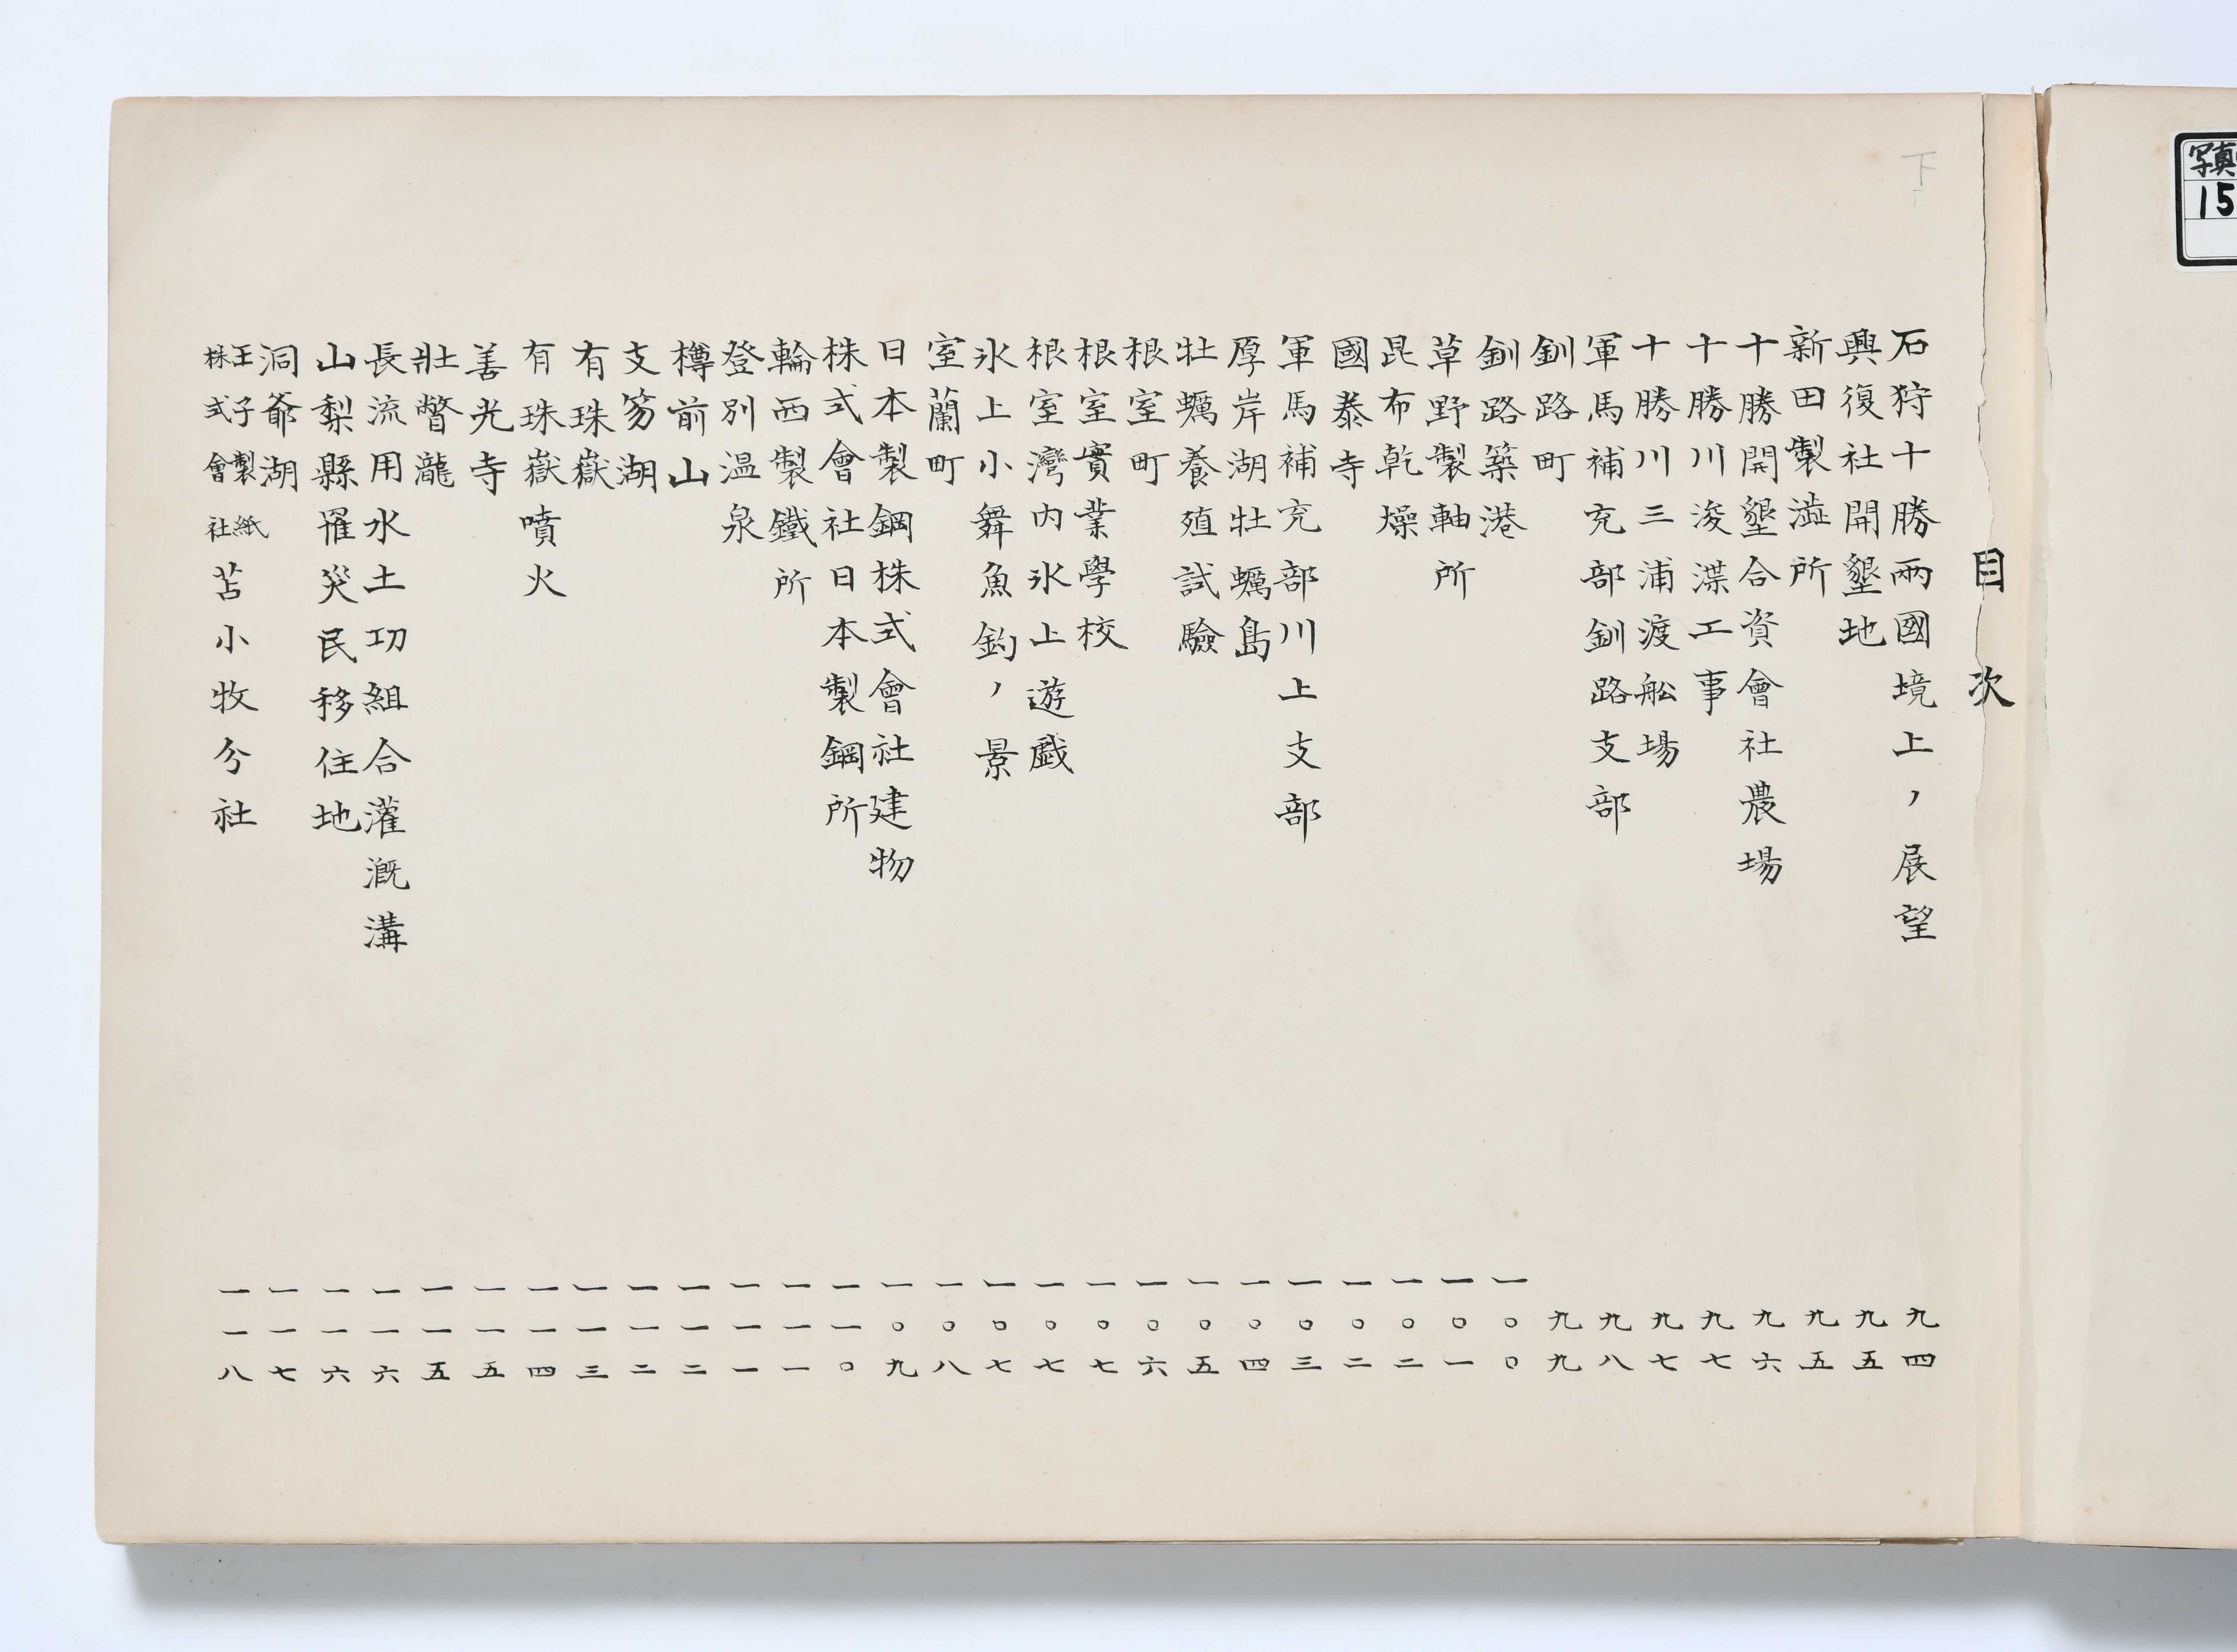 写真
15
下
目次
石狩十勝兩國境上ノ展望 九四
興復社開墾地 九五
新田製澁所 九五
十勝開墾合資會社農場 九六
十勝川浚渫工事 九七
十勝川三浦渡舩場 九七
軍馬補充部釧路支部 九八
釧路町 九九
釧路築港 一〇〇
草野製軸所 一〇一
昆布乾燥 一〇二
國泰寺 一〇二
軍馬補充部川上支部 一〇三
厚岸湖牡蠣島 一〇四
牡蠣養殖試驗 一〇五
根室町 一〇六
根室實業學校 一〇七
根室灣内氷上遊戯 一〇七
氷上小舞魚釣ノ景 一〇七
室蘭町 一〇八
日本製鋼株式會社建物 一〇九
株式會社日本製鋼所 一一〇
輪西製鐵所 一一一
登別温泉 一一一
樽前山 一一二
支笏湖 一一二
有珠嶽 一一三
有珠嶽噴火 一一四
善光寺 一一五
壯瞥瀧 一一五
長流用水土功組合灌漑溝 一一六
山梨縣罹災民移住地 一一六
洞爺湖 一一七
王子製紙株式會社苫小牧分社 一一八